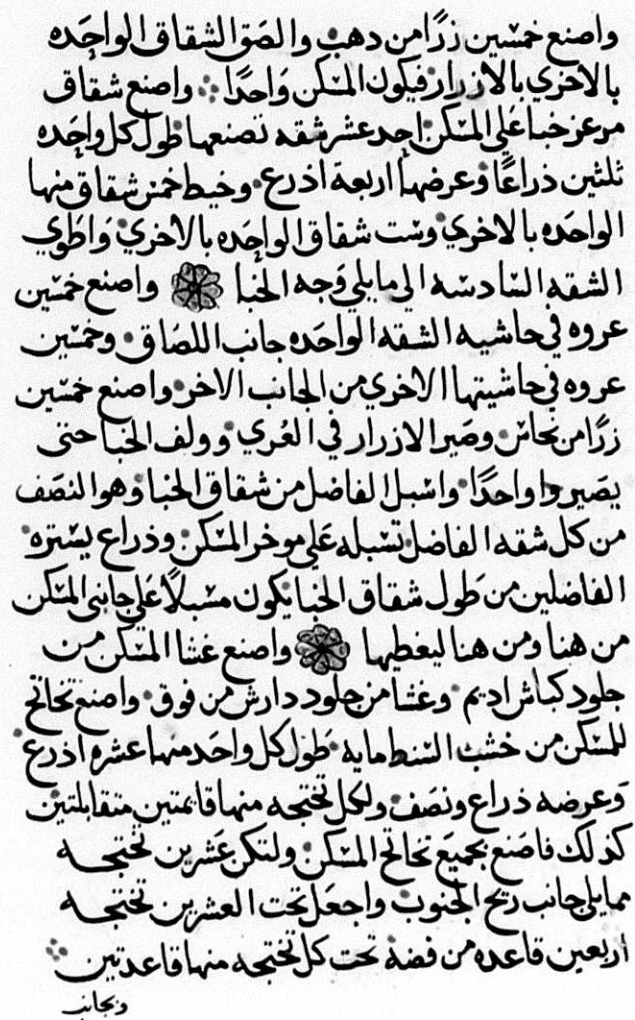 واصنع خمسين زرًا من دهب والصق الشقاق الواحده
بالاخري بالازرار فيكون المسكن واحدًا ۞ واصنع شقاق
مرعز خبا علي المسكن احد عشر شقه تصنعها طول كل واحده
ثلثين ذراعًا وعرضها اربعة اذرع وخيط خمس شقاق منها
الواحده بالاخري وست شقاق الواحده بالاخري واطوي
الشقه السادسه الي ما يلي وجه الخبا ۞ واصنع خمسين
عروه في حاشيه الشقه الواحده جانب اللصاق وخمسين
عروه في حاشيتها الاخري من الجانب الاخر واصنع خمسين
زرًا من نحاس وصير الازرار في العري وولف الخبا حتي
يصيروا واحدًا واسبل الفاضل من شقاق الخبا وهو النصف
من كل شقه الفاضل تسبله علي موخر المسكن وذراع يستره
الفاضلين من طول شقاق الخبا يكون مسبلًا علي جانبي المسكن
من هنا ومن هنا ليغطيها ۞ واصنع غشا المسكن من
جلود كباش اديم وغشا من جلود دارش من فوق واصنع تخاتج
للمسكن من خشب السنط مايه طول كل واحد منها عشره اذرع
وعرضه ذراع ونصف ولكل تختجه منها قايمتين متقابلتين
كذلك فاصنع بجميع تخاتج المسكن ولتكن عشرين تختجه
مما يلي جانب ريح الجنوب واجعل تحت العشرين تختجه
اربعين قاعده من فضة تحت كل تختجه منها قاعدتين
وبجانب